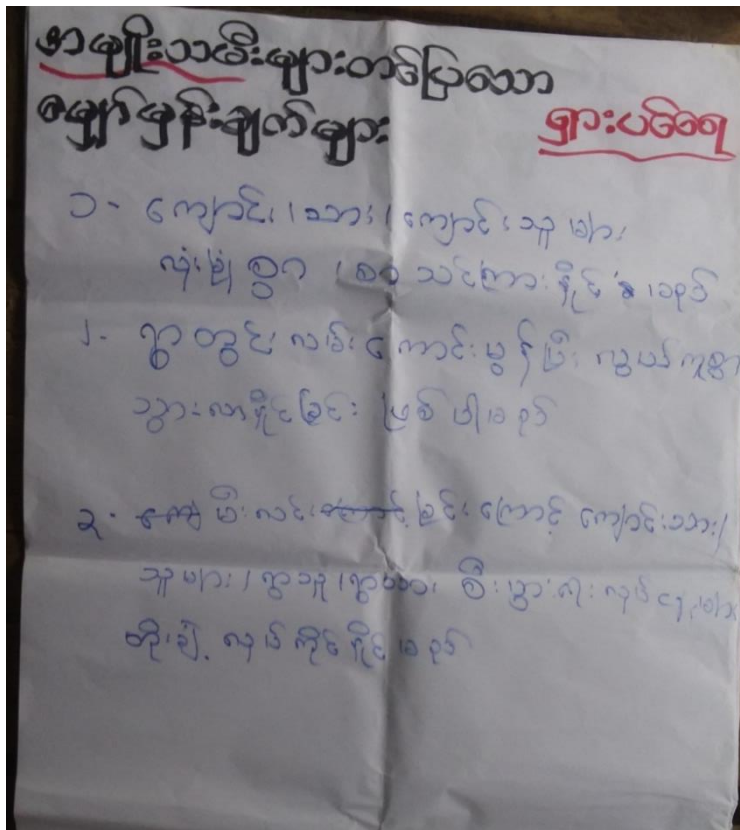 အမျိုးသမီးများတင်ပြသော
မျှော်မှန်းချက်များ
ရှားပင်ရေ
၁- ကျောင်း၊သား၊ကျောင်းသူများ
လုံခြုံစွာ ၊ စာသင်ကြားနိုင်
၂- ရွာတွင်းလမ်းကောင်းမွန်ပြီး လွယ်ကူစွာ
သွားလာနိုင်ခြင်း ဖြစ်ပါမည်
၃- မီးလင်းခြင်းကြောင့် ကျောင်းသား/
သူများ၊ရွာသူ၊ရွာသား စီးပွားရေးလုပ်ငန်းများ
တိုးချဲ့လုပ်ကိုင်နိုင်မည်